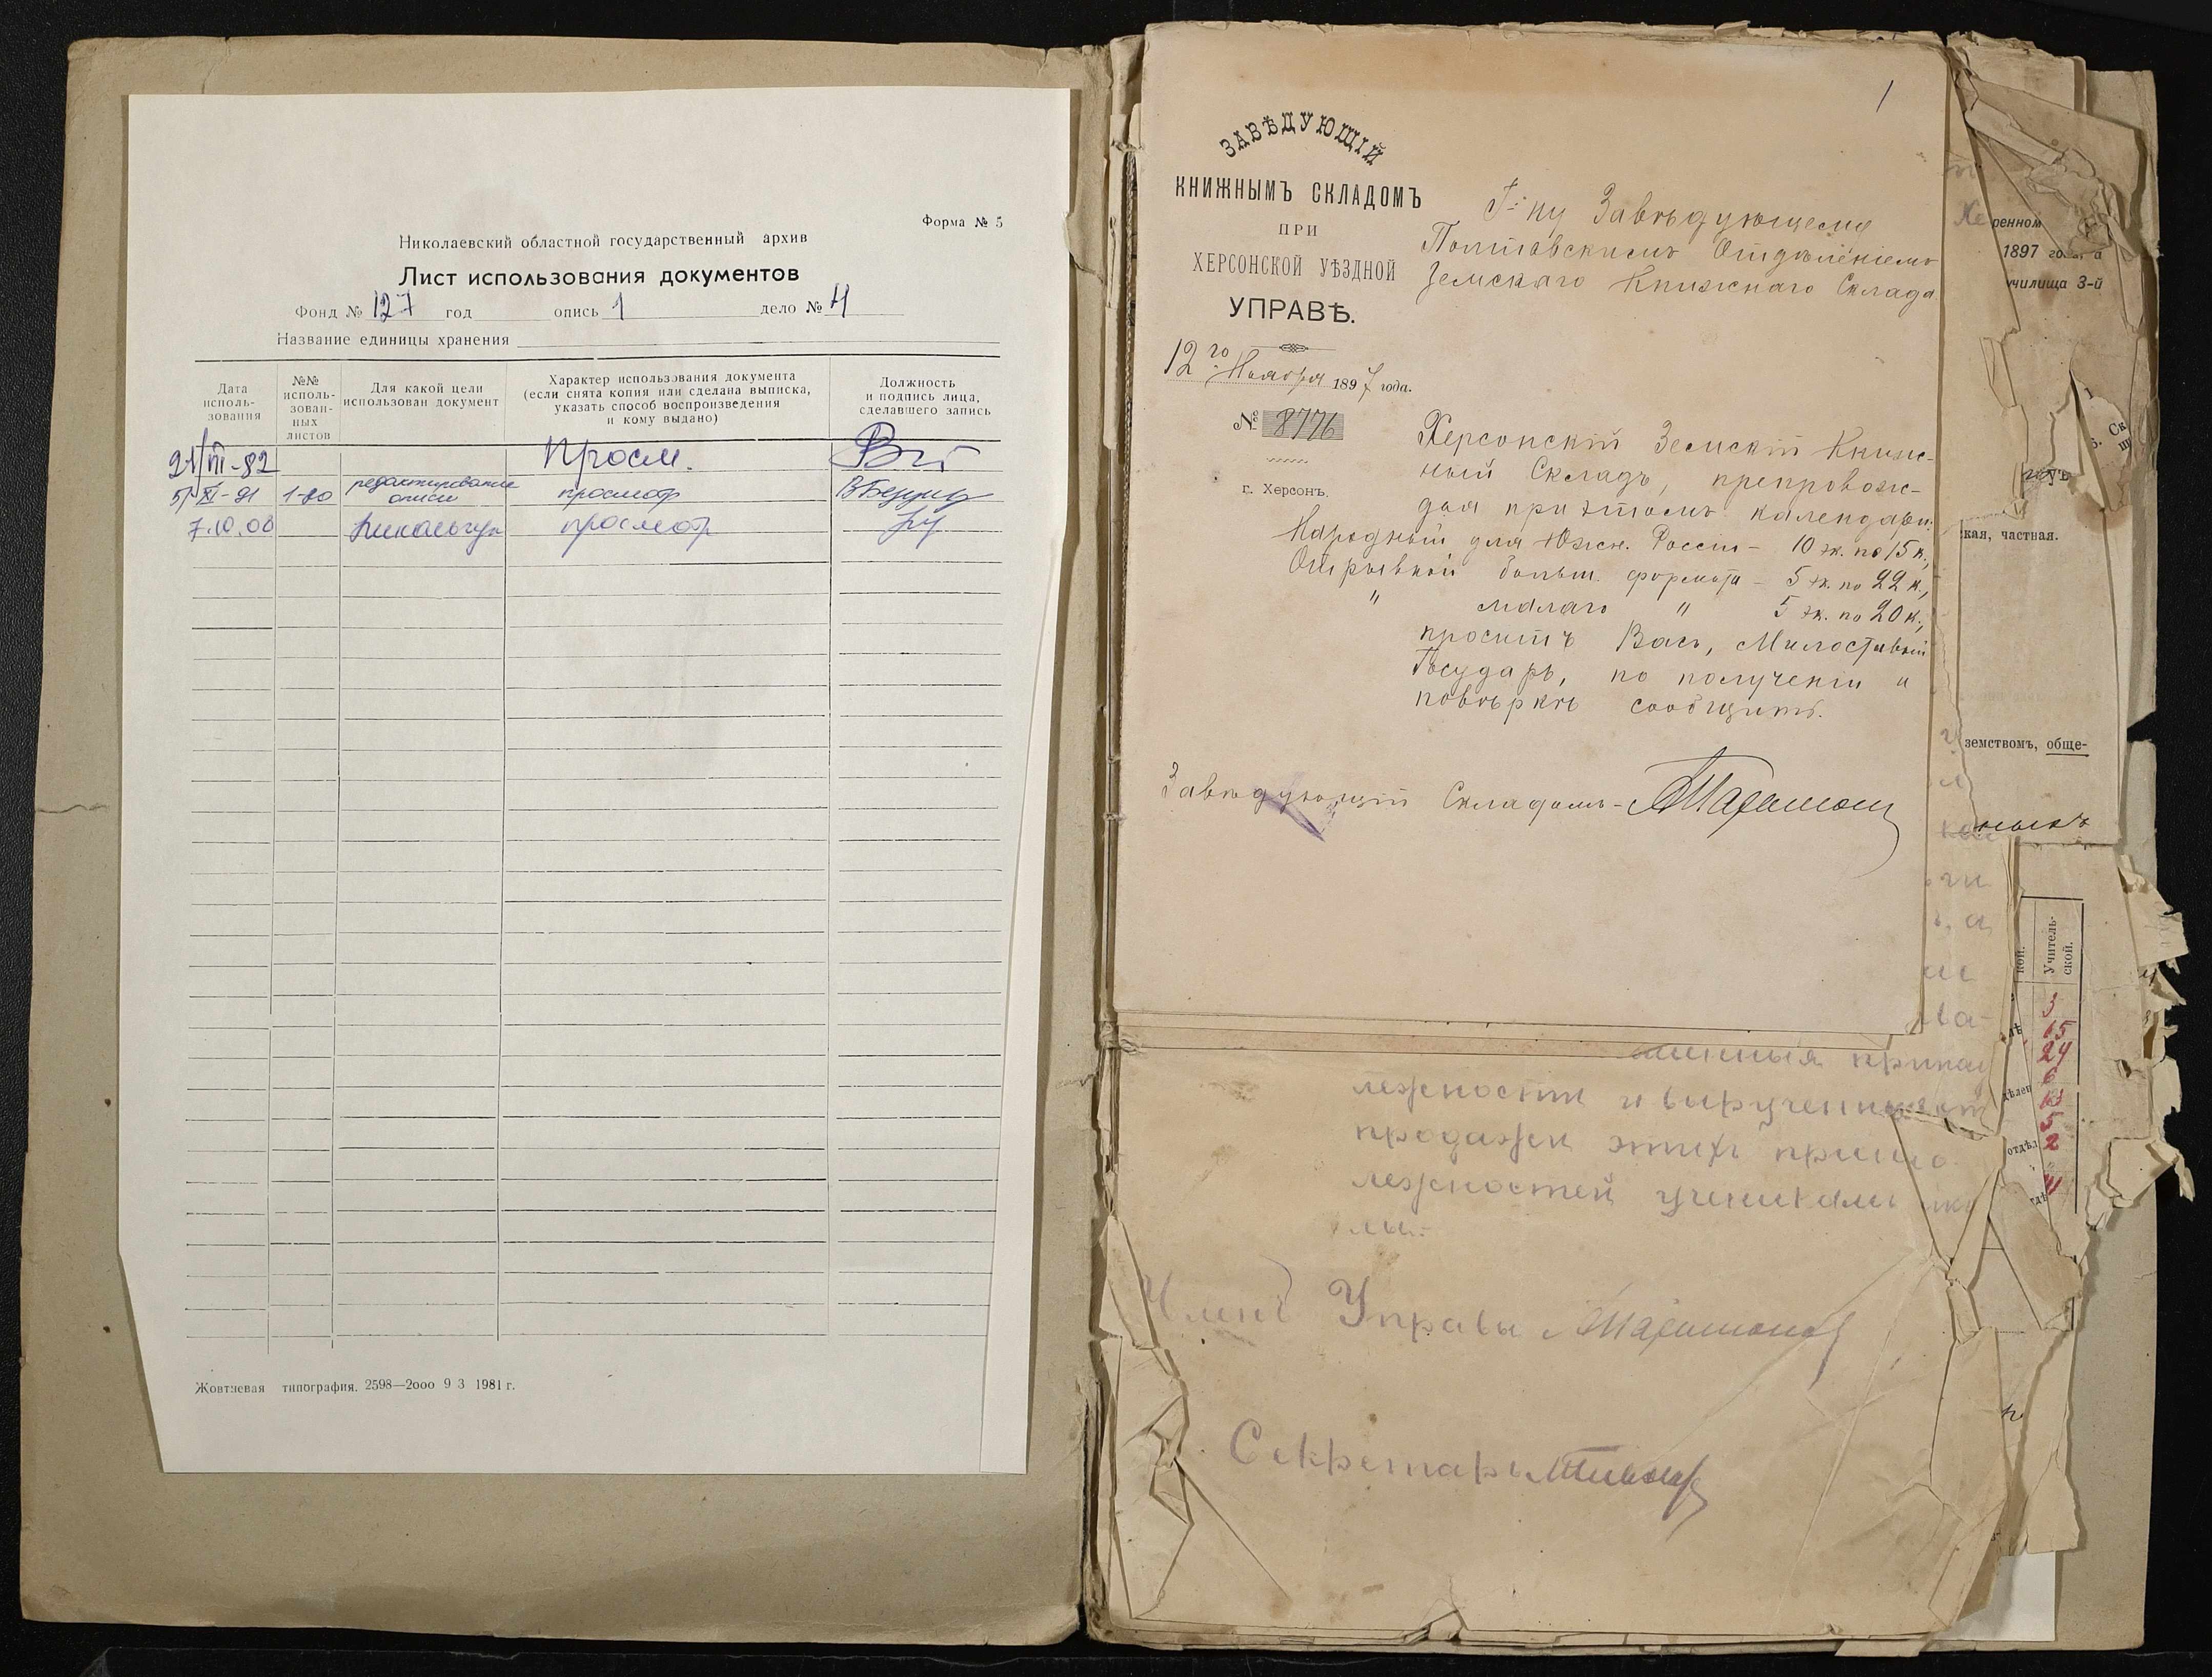 Форма № 5
Николаевский областной государственный архив
Лист использования документов
Фонд № 127 год опись 1 дело № 4
Название единицы хранения
Дата исполь-зования
№№ исполь-зован-ных листов
Для какой цели использован документ
Характер использования документа (если снята копия или сделана выписка, указать способ воспроизведения и кому выдано)
Должность и подпись лица, сделавшего запись
21/VII-82 Просм.
5/XI-91 1-80 редактирование описи просмотр
7.10.08 просмотр
Жовтневая типография. 2598—2000 9 3 1981 г.
1
ЗАВѢДУЮЩІЙ
КНИЖНЫМЪ СКЛАДОМЪ
ПРИ
ХЕРСОНСКОЙ УѢЗДНОЙ
УПРАВѢ.
12го Ноября 1897 года.
№ 8776
г. Херсонъ.
Г-ну Завѣдующему
Полтавскимъ Отдѣленіемъ
Земскаго Книжнаго Склада
Херсонскій Земскій Книж-
ный Складъ, препровож-
дая при этомъ календари:
Народный для Южн. Россіи - 10 эк. по 15 к.,
Отрывной больш. формата - 5 эк. по 22 к.,
" малаго " 5 эк. по 20 к.,
проситъ Васъ, Милостивый
Государь, по полученіи и
повѣркѣ сообщить.
Завѣдующій Складомъ -
лежности и вырученны
продажи этихъ
лежностей ученикамъ
лы.
Членъ Управы
Секретарь
ренном
1897 го
училища 3-й
кая, частная.
земствомъ, обще-
Учитель-
ской.
3
15
24
5
2